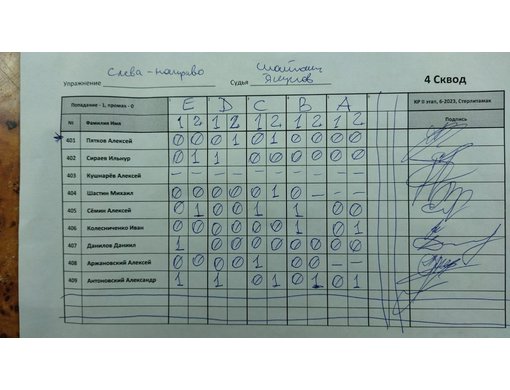 Упражнение Слева-направо Судья
4 Сквод
Попадание - 1, промах - 0 E D C B A КР II этап, 6-2023, Стерлитамак
№ Фамилия Имя 1 2 1 2 1 2 1 2 1 2 Подпись
401 Пятков Алексей 0 0 0 1 0 1 0 0 0 0
402 Сираев Ильнур 0 1 1 0 0 0 0 0 0
403 Кушнарёв Алексей - - - - - - - - - -
404 Шастин Михаил 0 0 0 0 0 1 0 - - -
405 Сёмин Алексей 0 1 0 0 1 1 0 0
406 Колесниченко Иван 0 0 0 0 0 0 1 0 1
407 Данилов Даниил 1 0 0 0 0 0 0 0 0
408 Аржановский Алексей 0 0 0 0 1 0 0 - -
409 Антоновский Александр 1 1 0 1 0 1 0 1